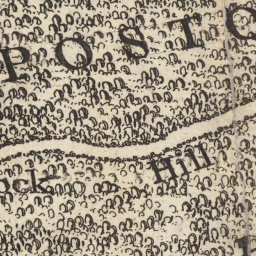 POSTO
ock Hill